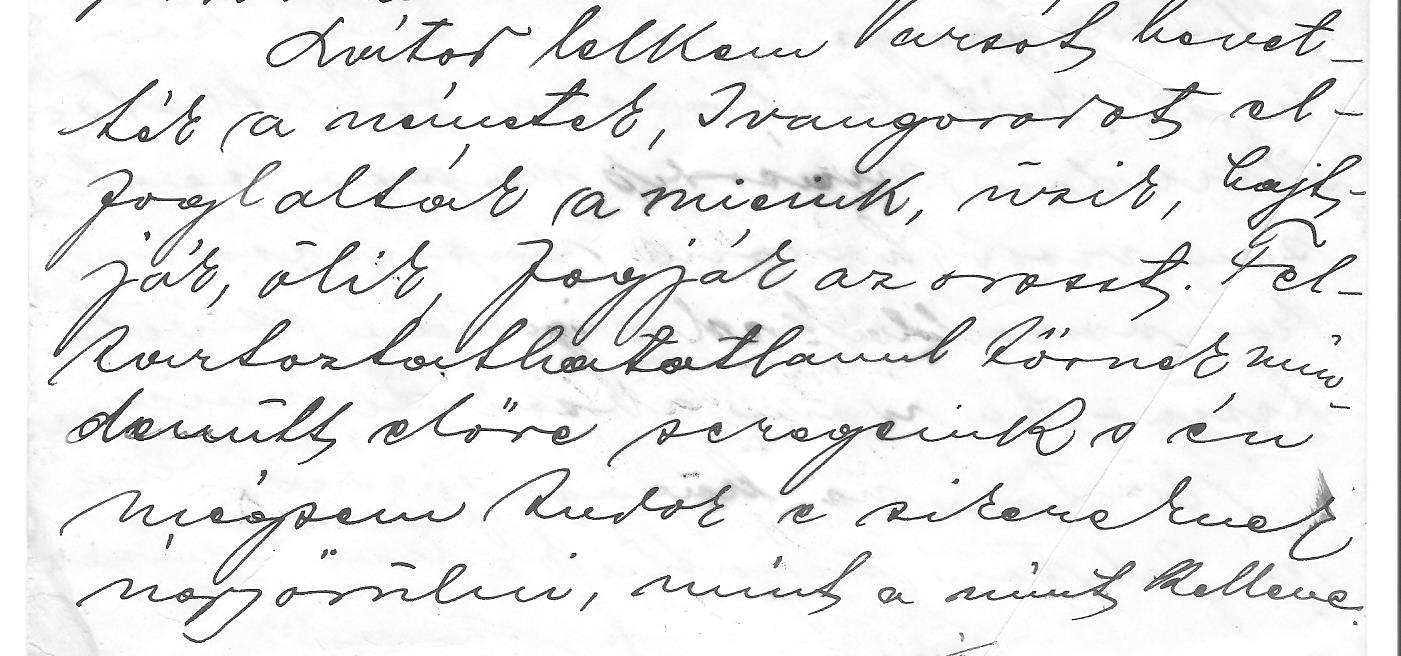 Látod lelkem Varsót bevet-
ték a németek, Ivangorodot el-
foglalták a mieink, űzik, hajt-
ják, ölik, fogják az oroszt. Fel-
tartoztathatatlanul törnek min-
denütt előre seregeink s én
mégsem tudok e sikereknek
úgy örülni, mint a mint kellene.